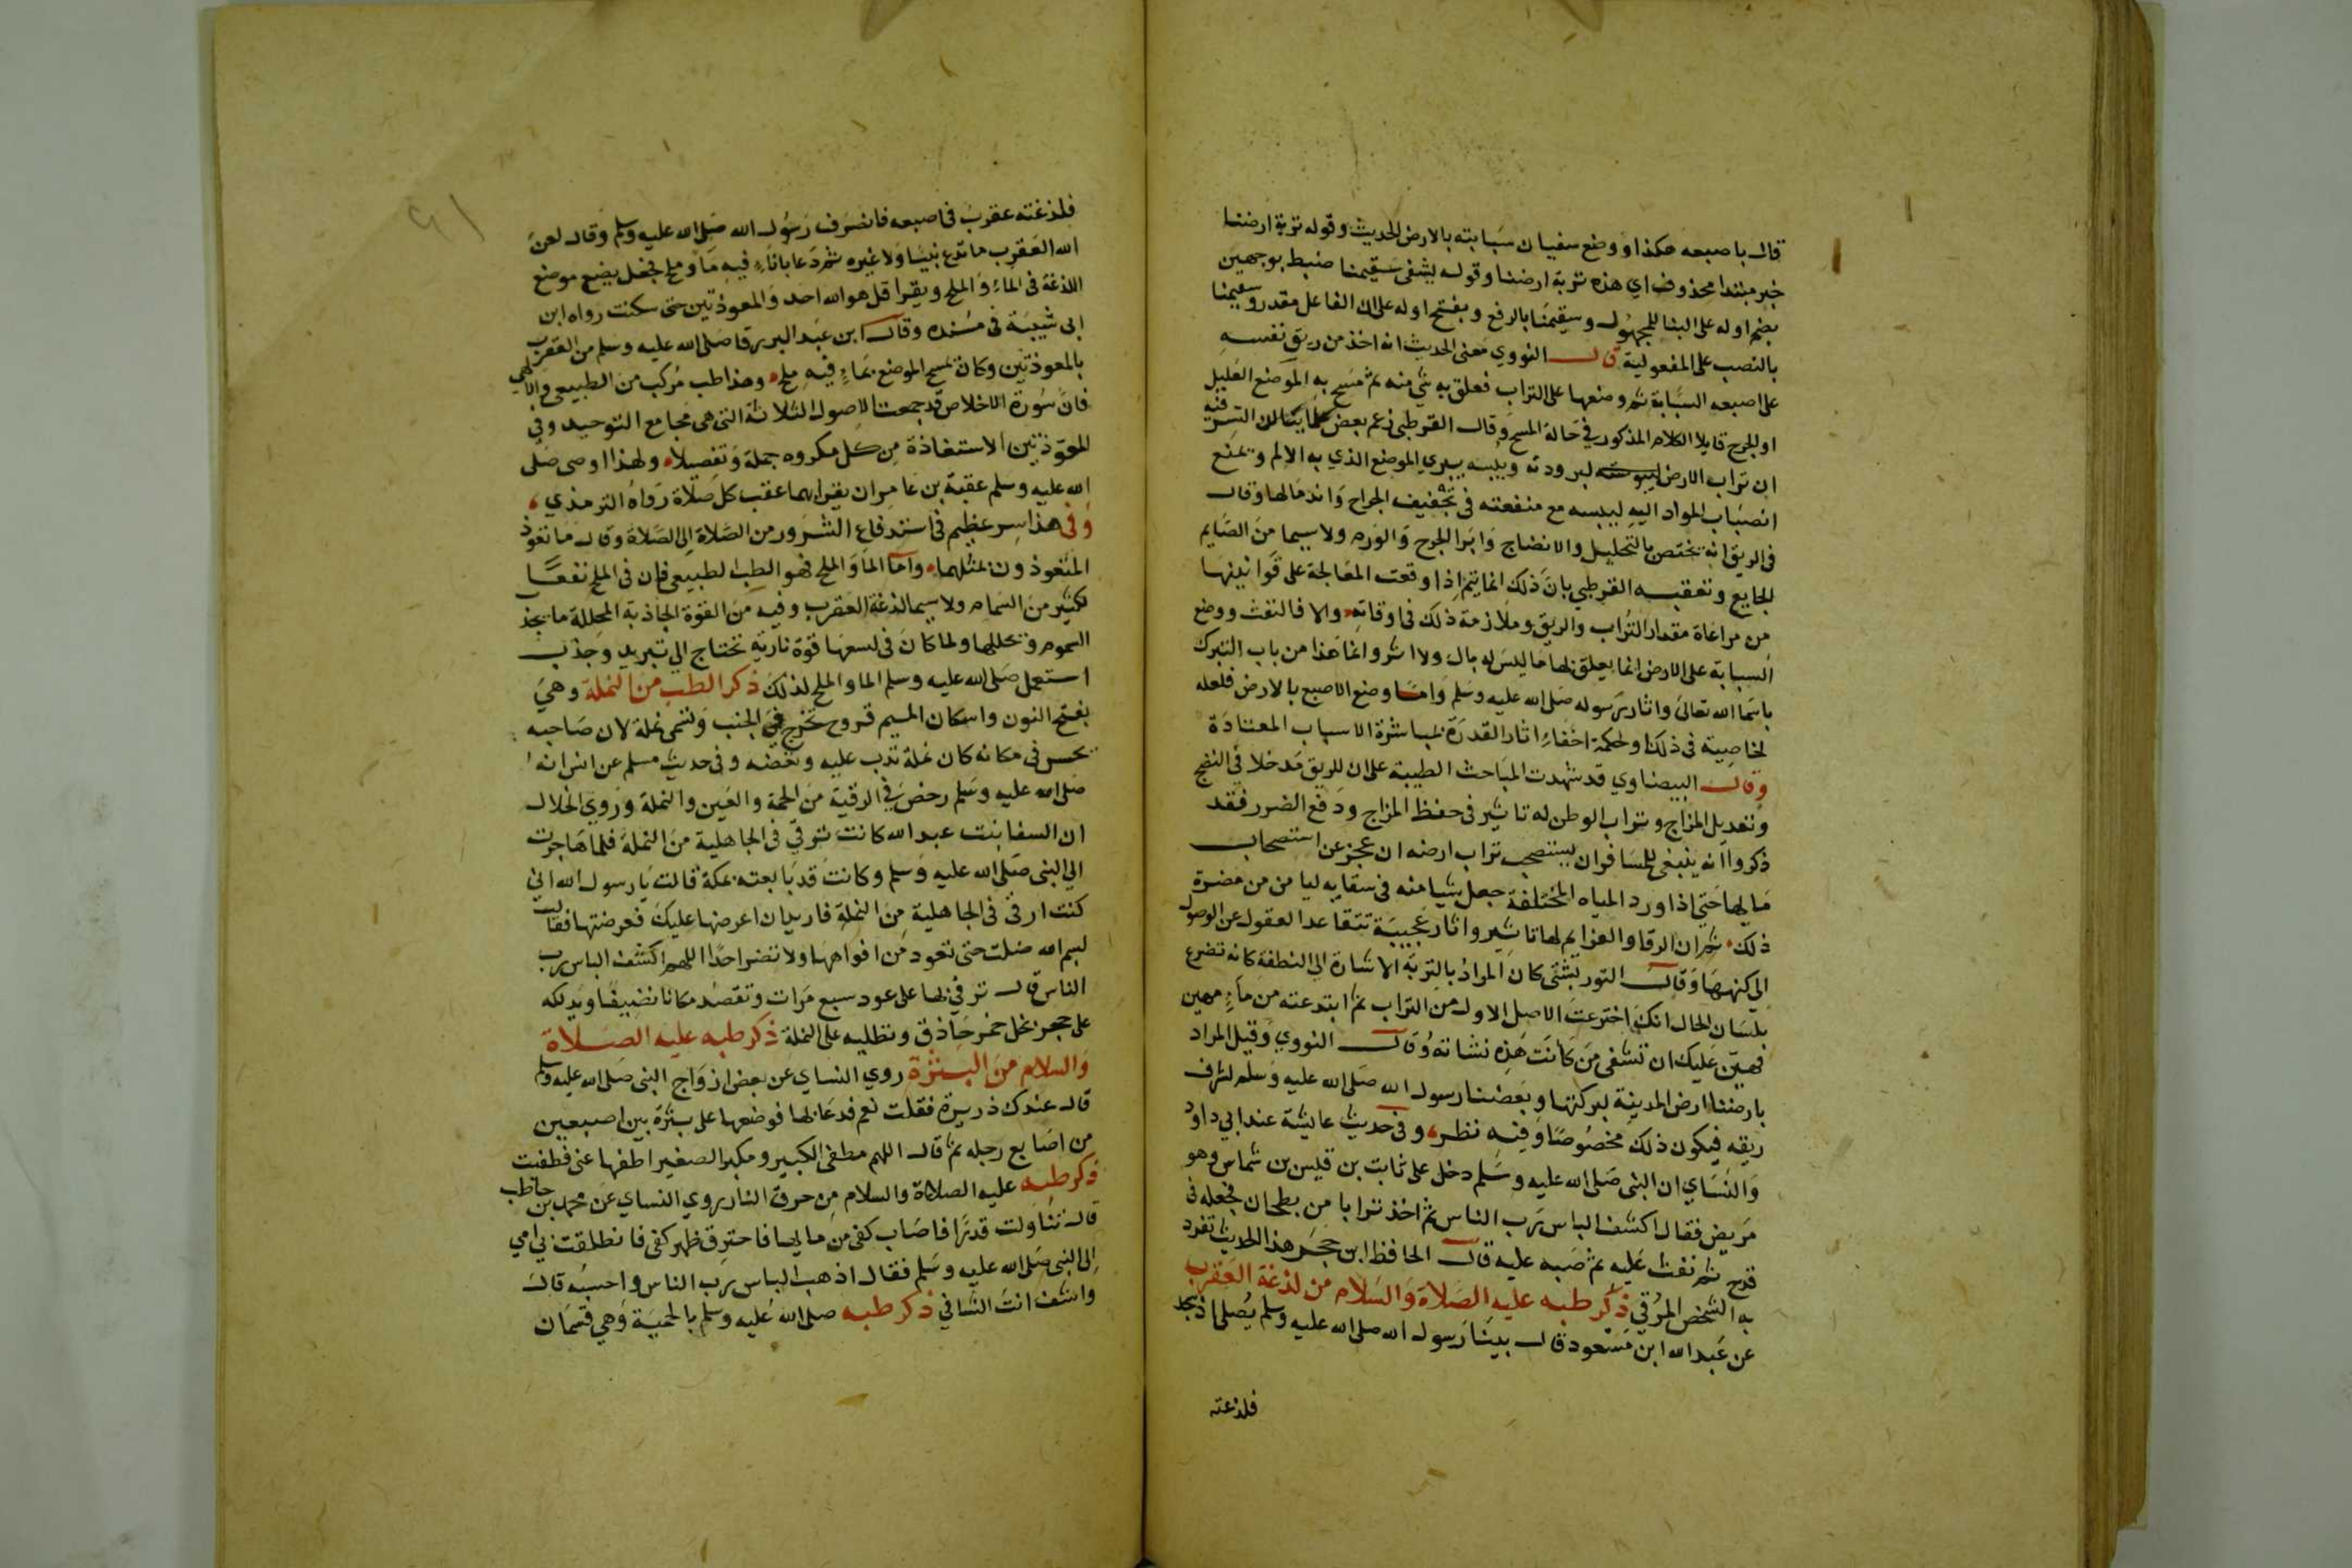 قال باصبعه هكذا ووضع سفيان سبابته بالارض الحديث وقوله تربة ارضنا
خبر مبتدا محذوف اي هذه تربة ارضنا وقوله يشفى سقيمنا ضبط بوجهين
بضم اوله على البنا للمجهول وسقيمنا بالرفع وبفتح اوله على ان الفاعل مقدر وسقيمنا
بالنصب على المفعولية قال النووي معنى الحديث انه اخذ من ريق نفسه
على اصبعه السبابة ثم وضعها على التراب فعلق به شي منه ثم مسح به الموضع العليل
او الجرح قايلا الكلام المذكور في حالة المسح وقال القرطبي زعم بعض علمائنا ان السر فيه
ان تراب الارض لبرودته ويبسه يبري الموضع الذي به الالم ويمنع
انصباب المواد اليه ليبسه مع منفعته في تجفيف الجراح واندمالها وقال
في الريق انه يختص بالتحليل والانضاج وابرا الجرح والورم ولا سيما من الصايم
الجايع وتعقبه القرطبي بان ذلك انما يتم اذا وقعت المعالجة على قوانينها
من مراعاة مقدار التراب والريق وملازمة ذلك في اوقاته والا فالنفث ووضع
السبابة على الارض انما يعلق بها ما ليس له بال ولا اثر وانما هذا من باب التبرك
باسما الله تعالى واثار رسوله صلى الله عليه وسلم واما وضع الاصبع بالارض فلعله
لخاصية في ذلك او لحكمة اخفاء اثار القدرة بمباشرة الاسباب المعتادة
وقال البيضاوي قد شهدت المباحث الطبية على ان للريق مدخلا في النضج
وتعديل المزاج وتراب الوطن له تاثير في حفظ المزاج ودفع الضرر فقد
ذكروا انه ينبغي للمسافر ان يستصحب تراب ارضه ان عجز عن استصحاب
مايها حتى اذا ورد المياه المختلفة جعل شيا منه في سقايه ليامن من مضرة
ذلك ثم ان الرقا والعزايم لها تاثير واثار عجيبة تتقاعد العقول عن الوصول
الى كنهها وقال التوربشتي كان المراد بالتربة الاشارة الى النطفة كانه تضرع
بلسان الحال انك اخترعت الاصل الاول من التراب ثم ابتدعته من ماء مهين
فهين عليك ان تشفى من كانت هذه نشاته وقال النووي وقيل المراد
بارضنا ارض المدينة لبركتها وبعضنا رسول الله صلى الله عليه وسلم لشرف
ريقه فيكون ذلك مخصوصا وفيه نظر وفي حديث عايشة عند ابي داود
والنساي ان النبي صلى الله عليه وسلم دخل على ثابت بن قيس بن شماس وهو
مريض فقال اكشف الباس رب الناس ثم اخذ ترابا من بطحان فجعله في
قدح ثم نفث عليه ثم صبه عليه قال الحافظ ابن حجر هذا الحديث تفرد
به الشخص المرقي ذكر طبه عليه الصلاة والسلام من لدغة العقرب
عن عبد الله ابن مسعود قال بينا رسول الله صلى الله عليه وسلم يصلي اذ سجد
فلدغته
فلدغته عقرب في اصبعه فانصرف رسول الله صلى الله عليه وسلم وقال لعن
الله العقرب ما تدع نبيا ولا غيره ثم دعا باناء فيه ماء وملح فجعل يضع موضع
اللدغة في الماء والملح ويقرا قل هو الله احد والمعوذتين حتى سكنت رواه ابن
ابي شيبة في مسنده وقال ابن عبد البر رقا صلى الله عليه وسلم من العقرب
بالمعوذتين وكان يمسح الموضع بماء فيه ملح وهذا طب مركب من الطبيعي والالهي
فان سورة الاخلاص قد جمعت الاصول الثلاثة التي هي مجامع التوحيد وفي
المعوذتين الاستعاذة من كل مكروه جملة وتفصيلا ولهذا اوصى صلى
الله عليه وسلم عقبة بن عامر ان يقراهما عقب كل صلاة رواه الترمذي
وفي هذا سر عظيم في استدفاع الشرور من الصلاة الى الصلاة وقال ما تعوذ
المتعوذون بمثلهما واما الما والملح فهو الطب الطبيعي فان في الملح نفعا
لكثير من السمام ولا سيما لدغة العقرب وفيه من القوة الجاذبة المحللة ما يجذ
السموم ويحللها ولما كان في لسعها قوة نارية تحتاج الى تبريد وجذب
استعمل صلى الله عليه وسلم الما والملح لذلك ذكر الطب من النملة وهي
بفتح النون واسكان الميم قروح تخرج في الجنب وتسمى نملة لان صاحبه
يحس في مكانه كان نملة تدب عليه وتعضه وفي حديث مسلم عن انس انه
صلى الله عليه وسلم رخص في الرقية من الحمة والعين والنملة وروى الخلال
ان الشفا بنت عبد الله كانت ترقي في الجاهلية من النملة فلما هاجرت
الى النبي صلى الله عليه وسلم وكانت قد بايعته بمكة قالت يا رسول الله اني
كنت ارقي في الجاهلية من النملة فاريد ان اعرضها عليك فعرضتها فقالت
بسم الله ضلت حتى تعود من افواهها ولا تضر احدا اللهم اكشف الباس رب
الناس قال ترقي بها على عود سبع مرات وتقصد مكانا نضيفا وتدلكه
على حجر بخل خمر حاذق وتطليه على النملة ذكر طبه عليه الصلاة
والسلام من البثرة روي النساي عن بعض ازواج النبي صلى الله عليه وسلم
قال عندك ذريرة فقلت نعم فدعا بها فوضعها على بثرة بين اصبعين
من اصابع رجله ثم قال اللهم مطفى الكبير ومكبر الصغير اطفها عنى فطفئت
ذكر طبه عليه الصلاة والسلام من حرق النار روي النساي عن محمد بن حاطب
قال تناولت قدرا فاصاب كفى من مايها فاحترق ظهر كفى فانطلقت بي امي
الى النبي صلى الله عليه وسلم فقال اذهب الباس رب الناس واحسبه قال
واشف انت الشافي ذكر طبه صلى الله عليه وسلم بالحمية وهي قسمان